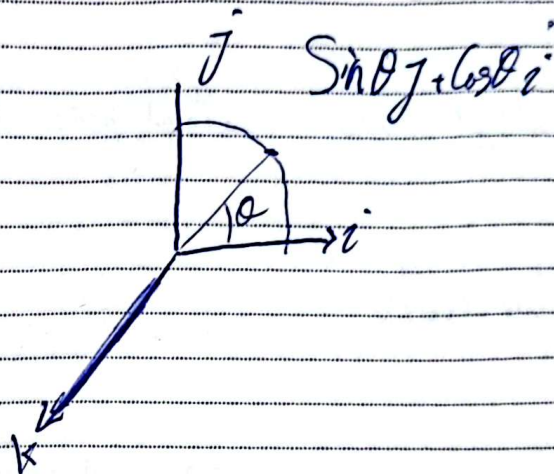 j
Sinθj + Cosθi
θ
i
k